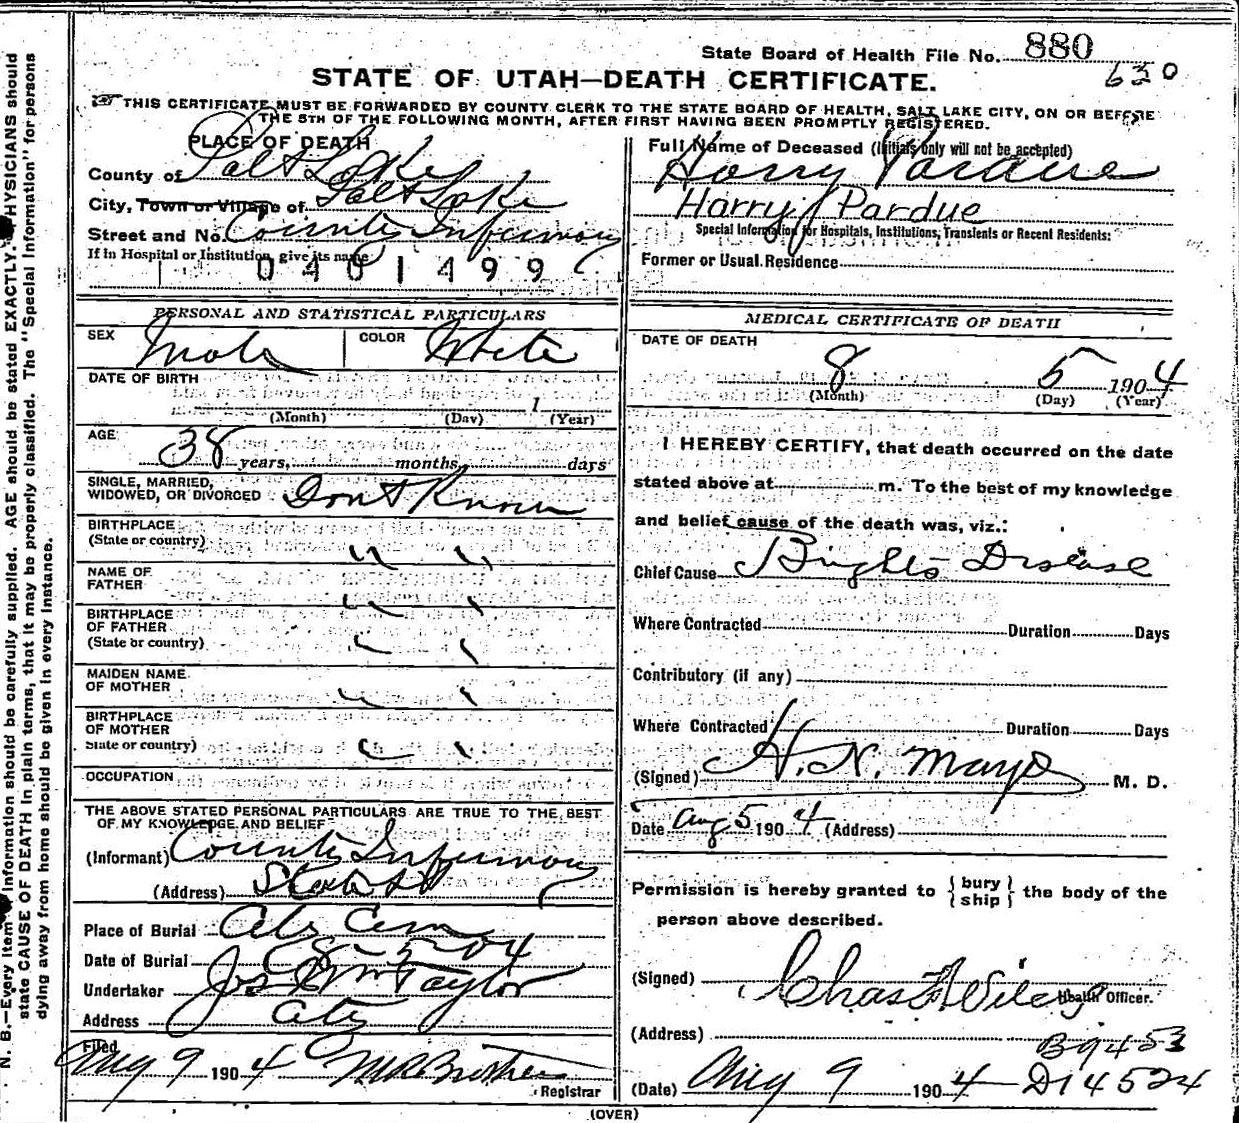 State Board of Health File No. 880
630
STATE OF UTAH—DEATH CERTIFICATE.
THIS CERTIFICATE MUST BE FORWARDED BY COUNTY CLERK TO THE STATE BOARD OF HEALTH, SALT LAKE CITY, ON OR BEFORE
THE 5TH OF THE FOLLOWING MONTH, AFTER FIRST HAVING BEEN PROMPTLY REGISTERED.
PLACE OF DEATH
County of Salt Lake
City, Town or Village of Salt Lake
Street and No. County Infirmary
If in Hospital or Institution, give its name
0401499
Full Name of Deceased (Initials only will not be accepted)
Harry Pardue
Harry Pardue
Special Information for Hospitals, Institutions, Transients or Recent Residents:
Former or Usual Residence
PERSONAL AND STATISTICAL PARTICULARS
SEX Male COLOR White
DATE OF BIRTH
1
(Month) (Day) (Year)
AGE
38 years, months, days
SINGLE, MARRIED,
WIDOWED, OR DIVORCED Dont Know
BIRTHPLACE
(State or country) " "
NAME OF
FATHER " "
BIRTHPLACE
OF FATHER
(State or country) " "
MAIDEN NAME
OF MOTHER " "
BIRTHPLACE
OF MOTHER
State or country) " "
OCCUPATION
THE ABOVE STATED PERSONAL PARTICULARS ARE TRUE TO THE BEST
OF MY KNOWLEDGE AND BELIEF
(Informant) County Infirmary
(Address) State St
Place of Burial City Cem
Date of Burial 8-5-04
Undertaker Jos Wm Taylor
Address City
Filed
Aug 9 1904
Registrar
MEDICAL CERTIFICATE OF DEATH
DATE OF DEATH
8 5 1904
(Month) (Day) (Year)
I HEREBY CERTIFY, that death occurred on the date
stated above at m. To the best of my knowledge
and belief cause of the death was, viz.:
Chief Cause Brights Disease
Where Contracted Duration Days
Contributory (if any)
Where Contracted Duration Days
(Signed) H. N. Mayo M. D.
Date Aug 5 1904 (Address)
Permission is hereby granted to { bury
ship } the body of the
person above described.
(Signed) Chas F Wilcox Health Officer.
(Address)
B9453
(Date) Aug 9 1904 D14524
(OVER)
N. B.—Every item of Information should be carefully supplied. AGE should be stated EXACTLY. PHYSICIANS should
state CAUSE OF DEATH in plain terms, that it may be properly classified. The "Special Information" for persons
dying away from home should be given in every instance.